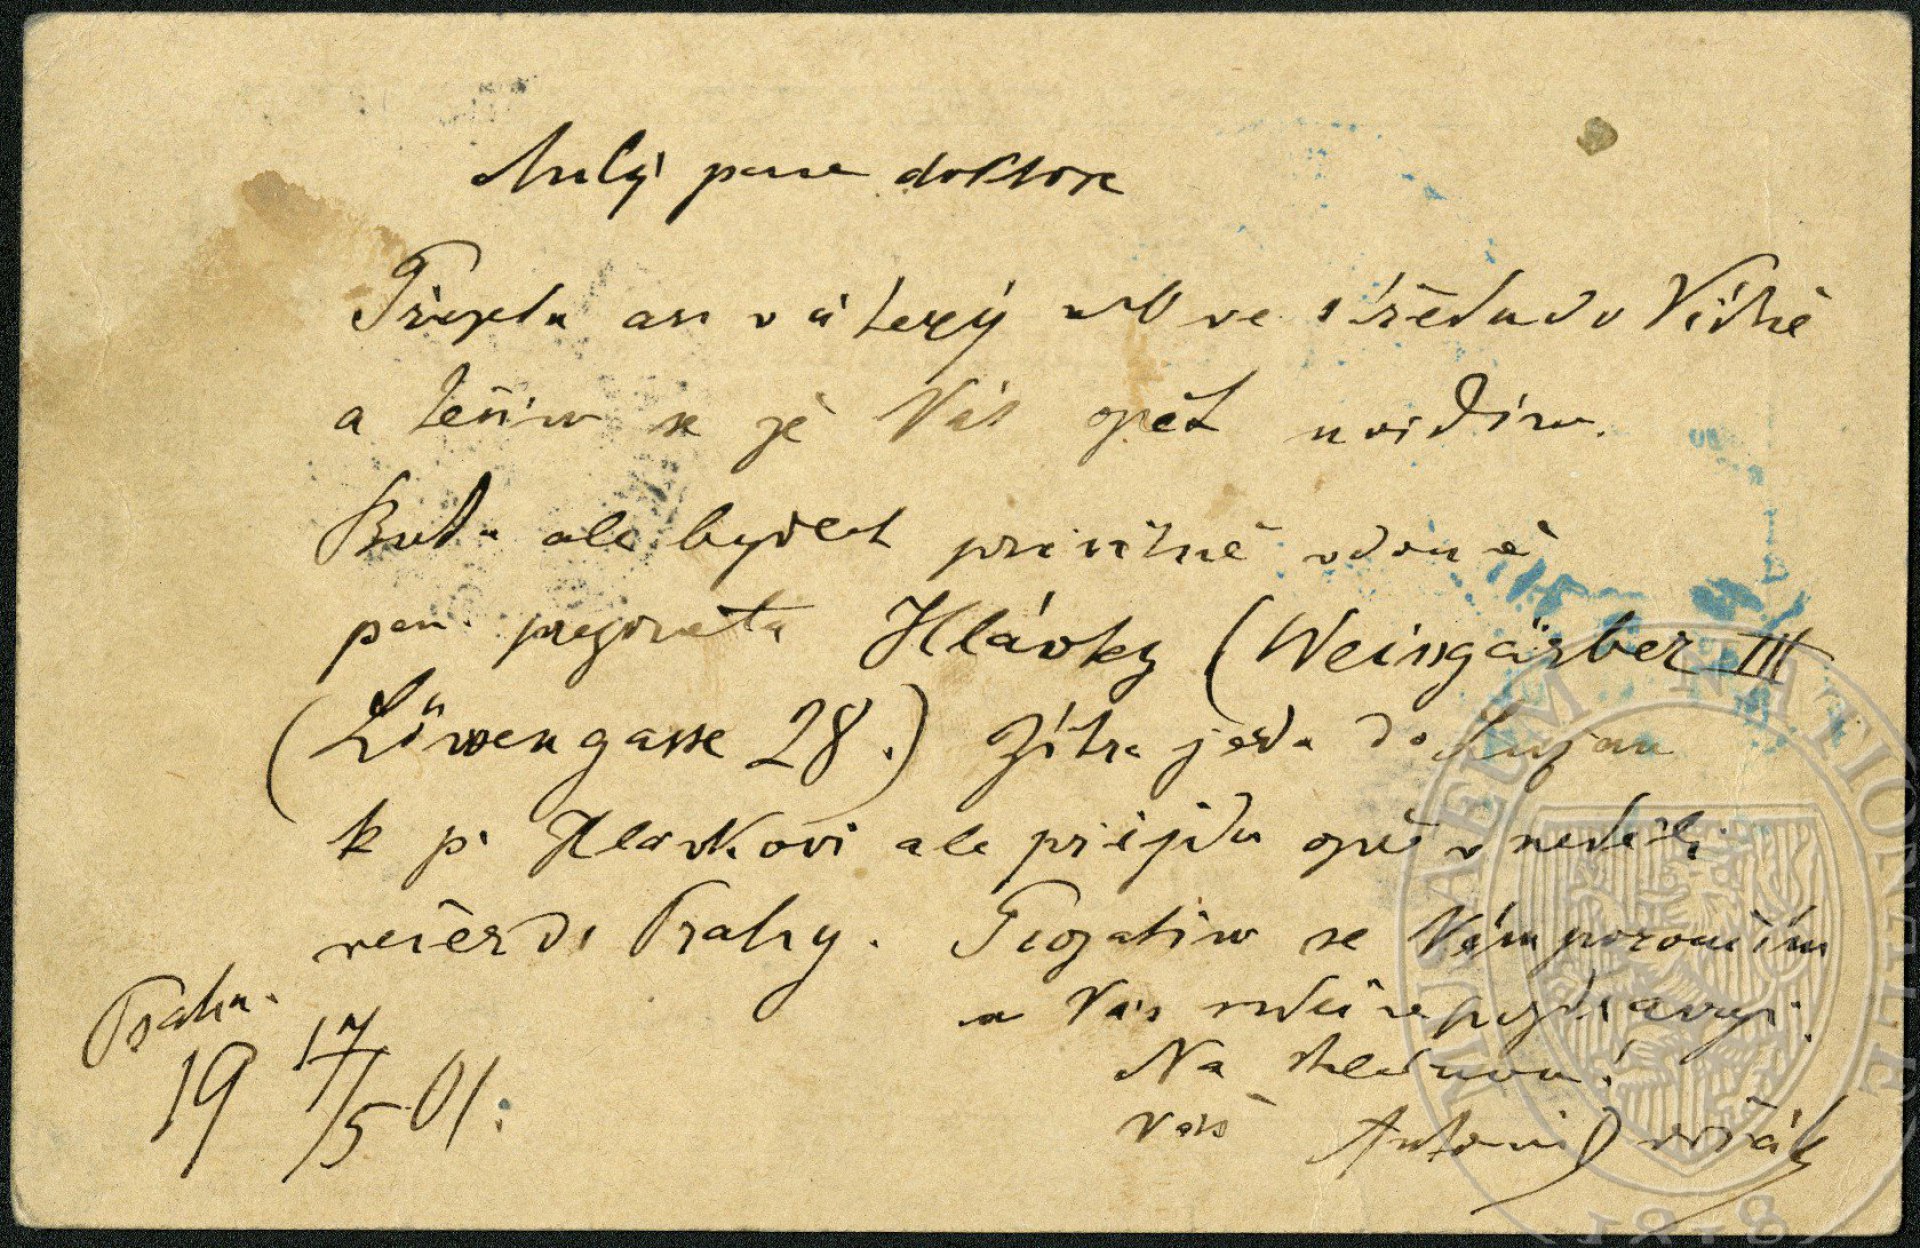 Milý pane doktore
Přijedu asi v úterý neb ve středu do Vídně
a těším se že Vás opět uvidím.
Budu ale bydlet privátně v domě
pan. presidenta Hlávky (Weissgärber III
(Löwengasse 28.) Zítra jedu do Lužan
k p. Hlávkovi ale přijedu opět v neděli
večer do Prahy. Prozatím se Vám poroučím
a Vás srdečně pozdravuji.
Na shledanou!
Váš Antonín Dvořák
Praha.
19 17/5 01.
MUSAEUM NATIONALE
1818